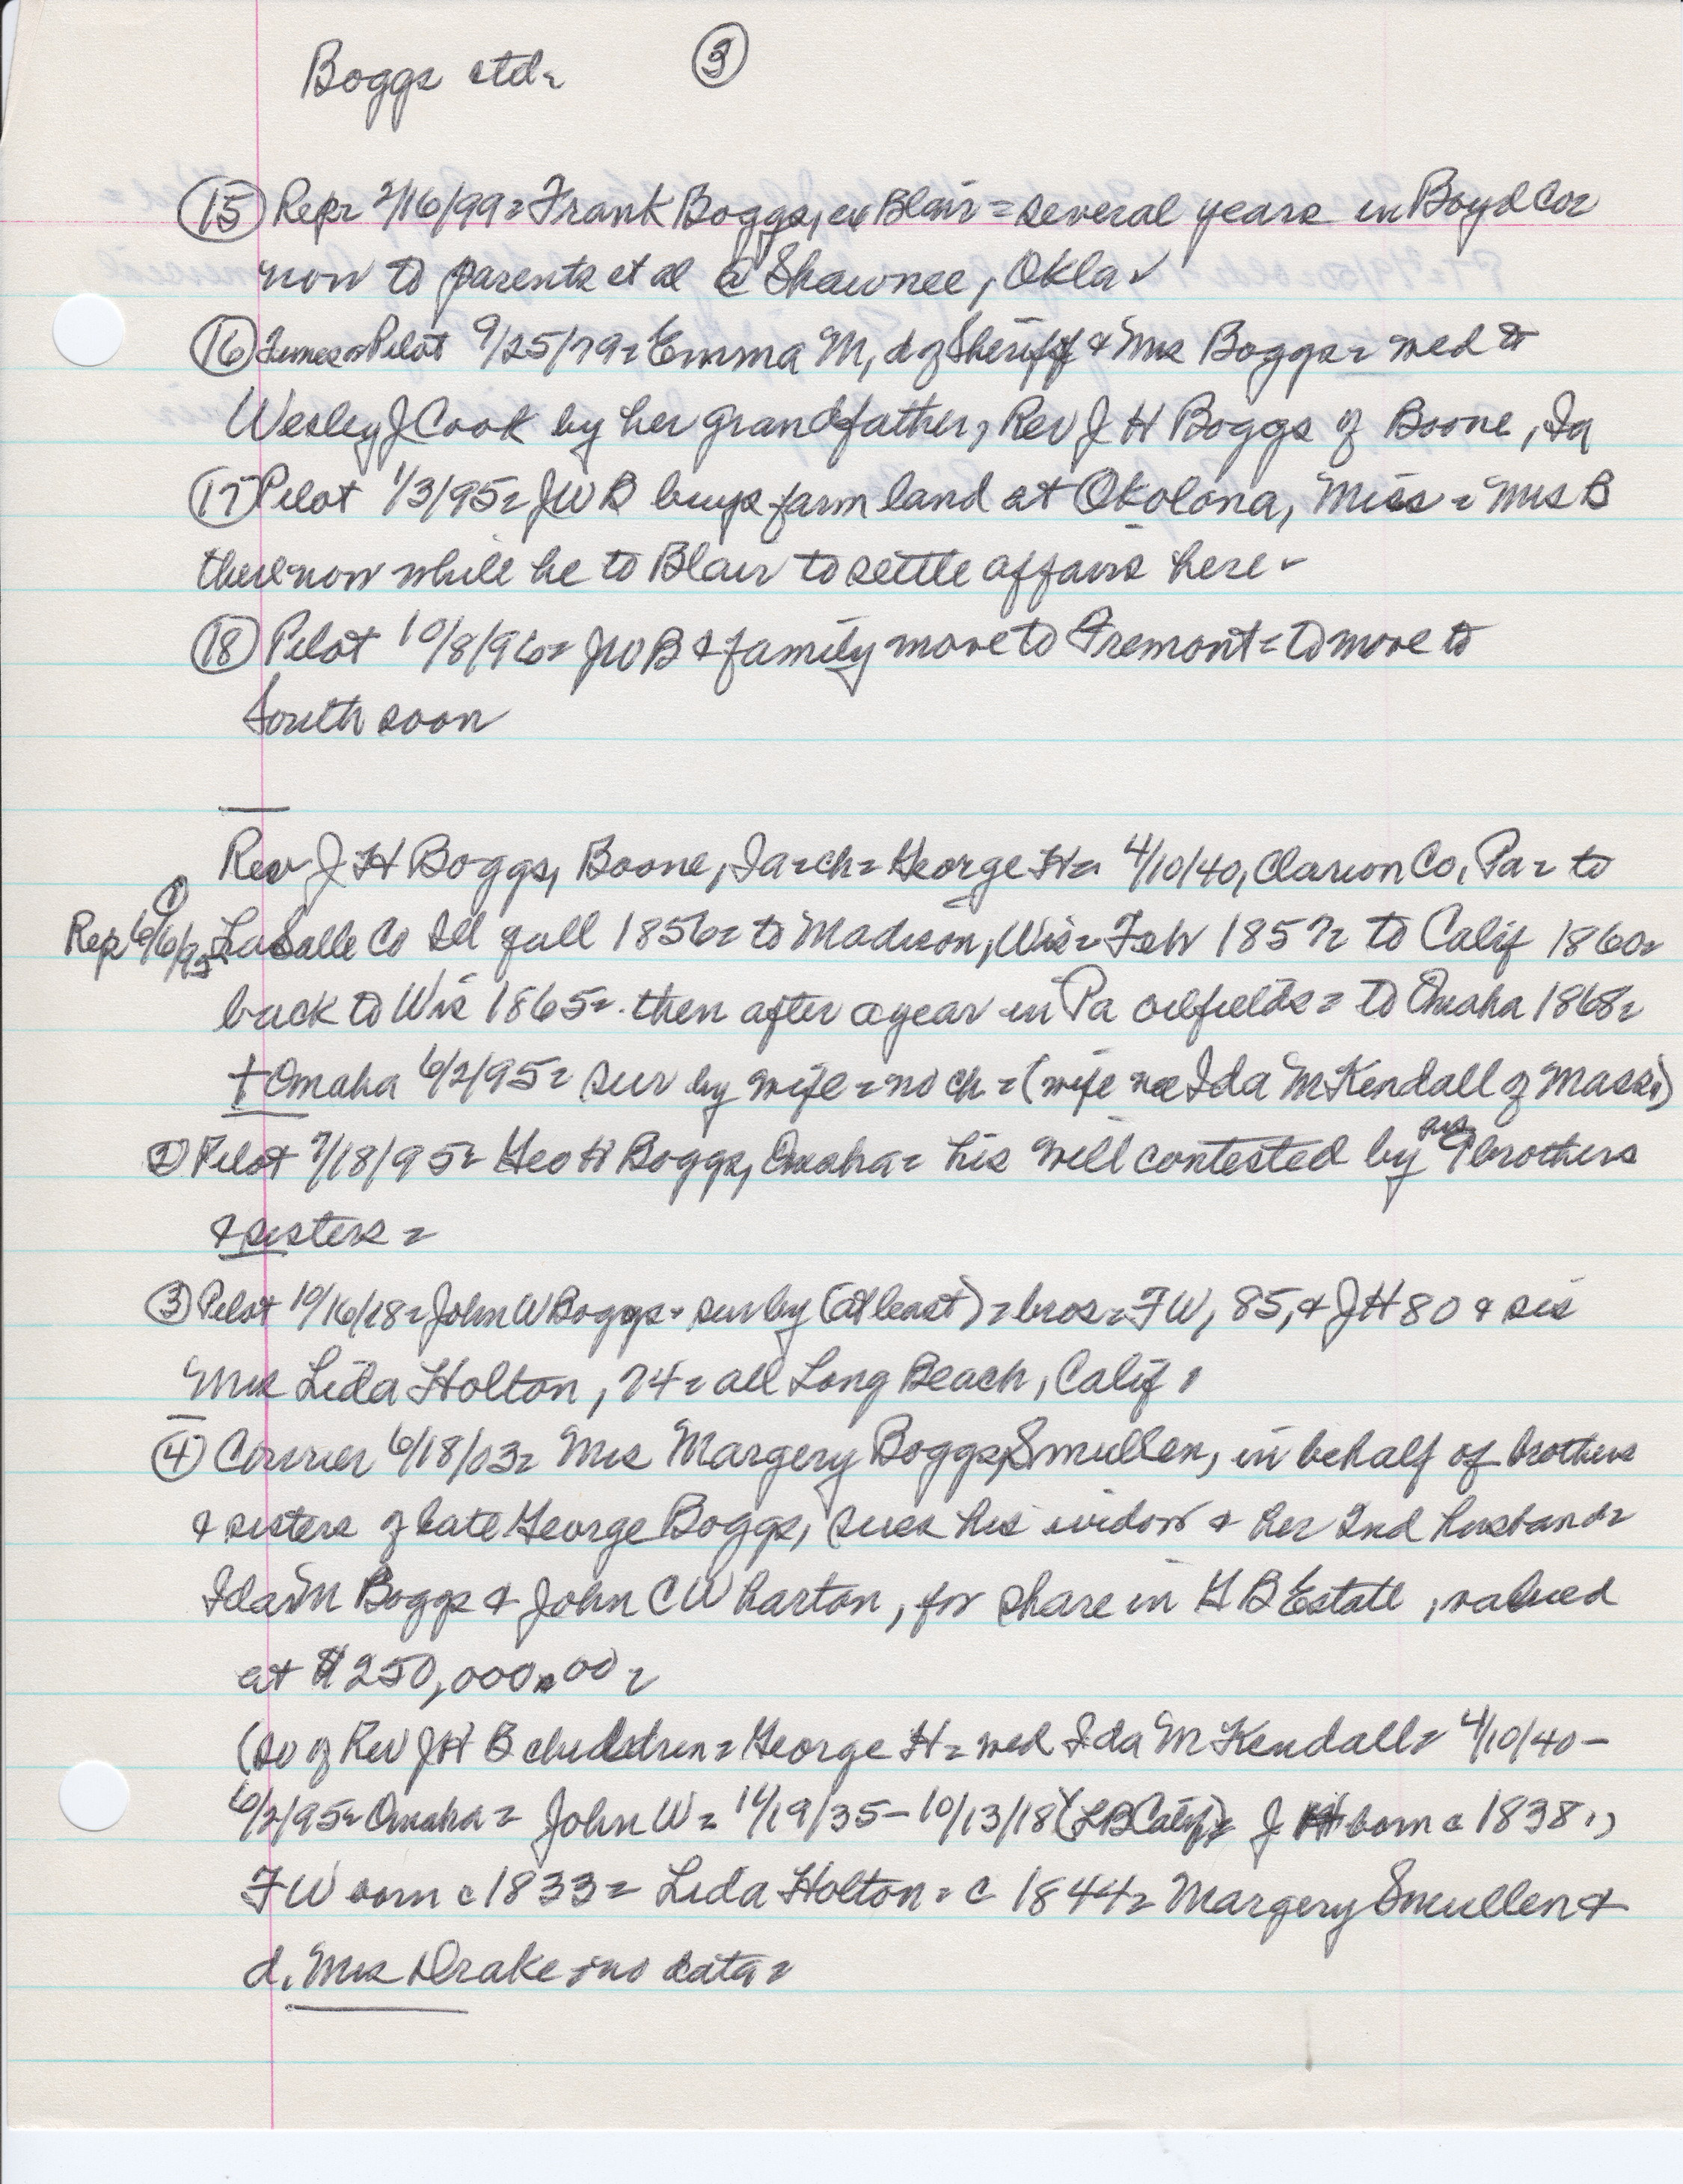 Boggs ctd= ③
⑮ Rep= 2/16/99= Frank Boggs, ex Blair = several years in Boyd Co=
now to parents et al @ Shawnee, Okla
⑯ Times Pilot 9/25/79= Emma M, d of Sheriff & Mrs Boggs= wed to
Wesley J Cook by her grandfather, Rev J H Boggs of Boone, Ia
⑰ Pilot 1/3/95= JWB buys farm land at Okolona, Miss = Mrs B
there now while he to Blair to settle affairs here=
⑱ Pilot 10/8/96= JWB & family move to Fremont= to move to
South soon
Rev J H Boggs, Boone, Ia=ch= George H= 4/10/40, Clarion Co, Pa= to
① Rep 6/6/95 LaSalle Co Ill fall 1856= to Madison, Wis= Feb 1857= to Calif 1860=
back to Wis 1865= then after a year in Pa oilfields= to Omaha 1868=
† Omaha 6/2/95= sur by wife=no ch=(wife nee Ida M Kendall of Mass)
② Pilot 7/18/95= Geo H Boggs, Omaha= his will contested by brothers
& sisters=
③ Pilot 10/16/18= John W Boggs= sur by (at least)= bros= FW, 85, & JH 80 & sis
Mrs Lida Holton, 74= all Long Beach, Calif.
④ Courier 6/18/03= Mrs Margery Boggs Smullen, in behalf of brothers
& sisters of late George Boggs, sues his widow & her 2nd husband=
Ida M Boggs & John C Wharton, for share in G B Estate, valued
at $250,000.00=
(so of Rev JH B children= George H= wed Ida M Kendall= 4/10/40-
6/2/95= Omaha= John W= 11/19/35-10/13/18 (LB Calif)= J H born c 1838.,
FW born c 1833= Lida Holton= c 1844= Margery Smullen &
d. Mrs Drake=no data=